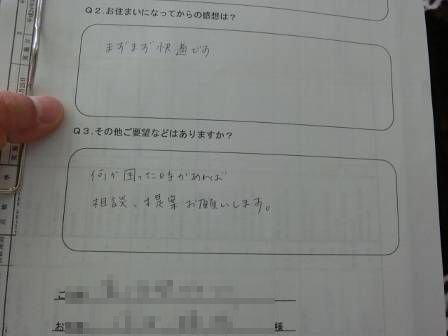 Q2.お住まいになってからの感想は？
まずまず快適です
Q3.その他ご要望などはありますか？
何か困った時があれば
相談、提案お願いします。
ご
お
様